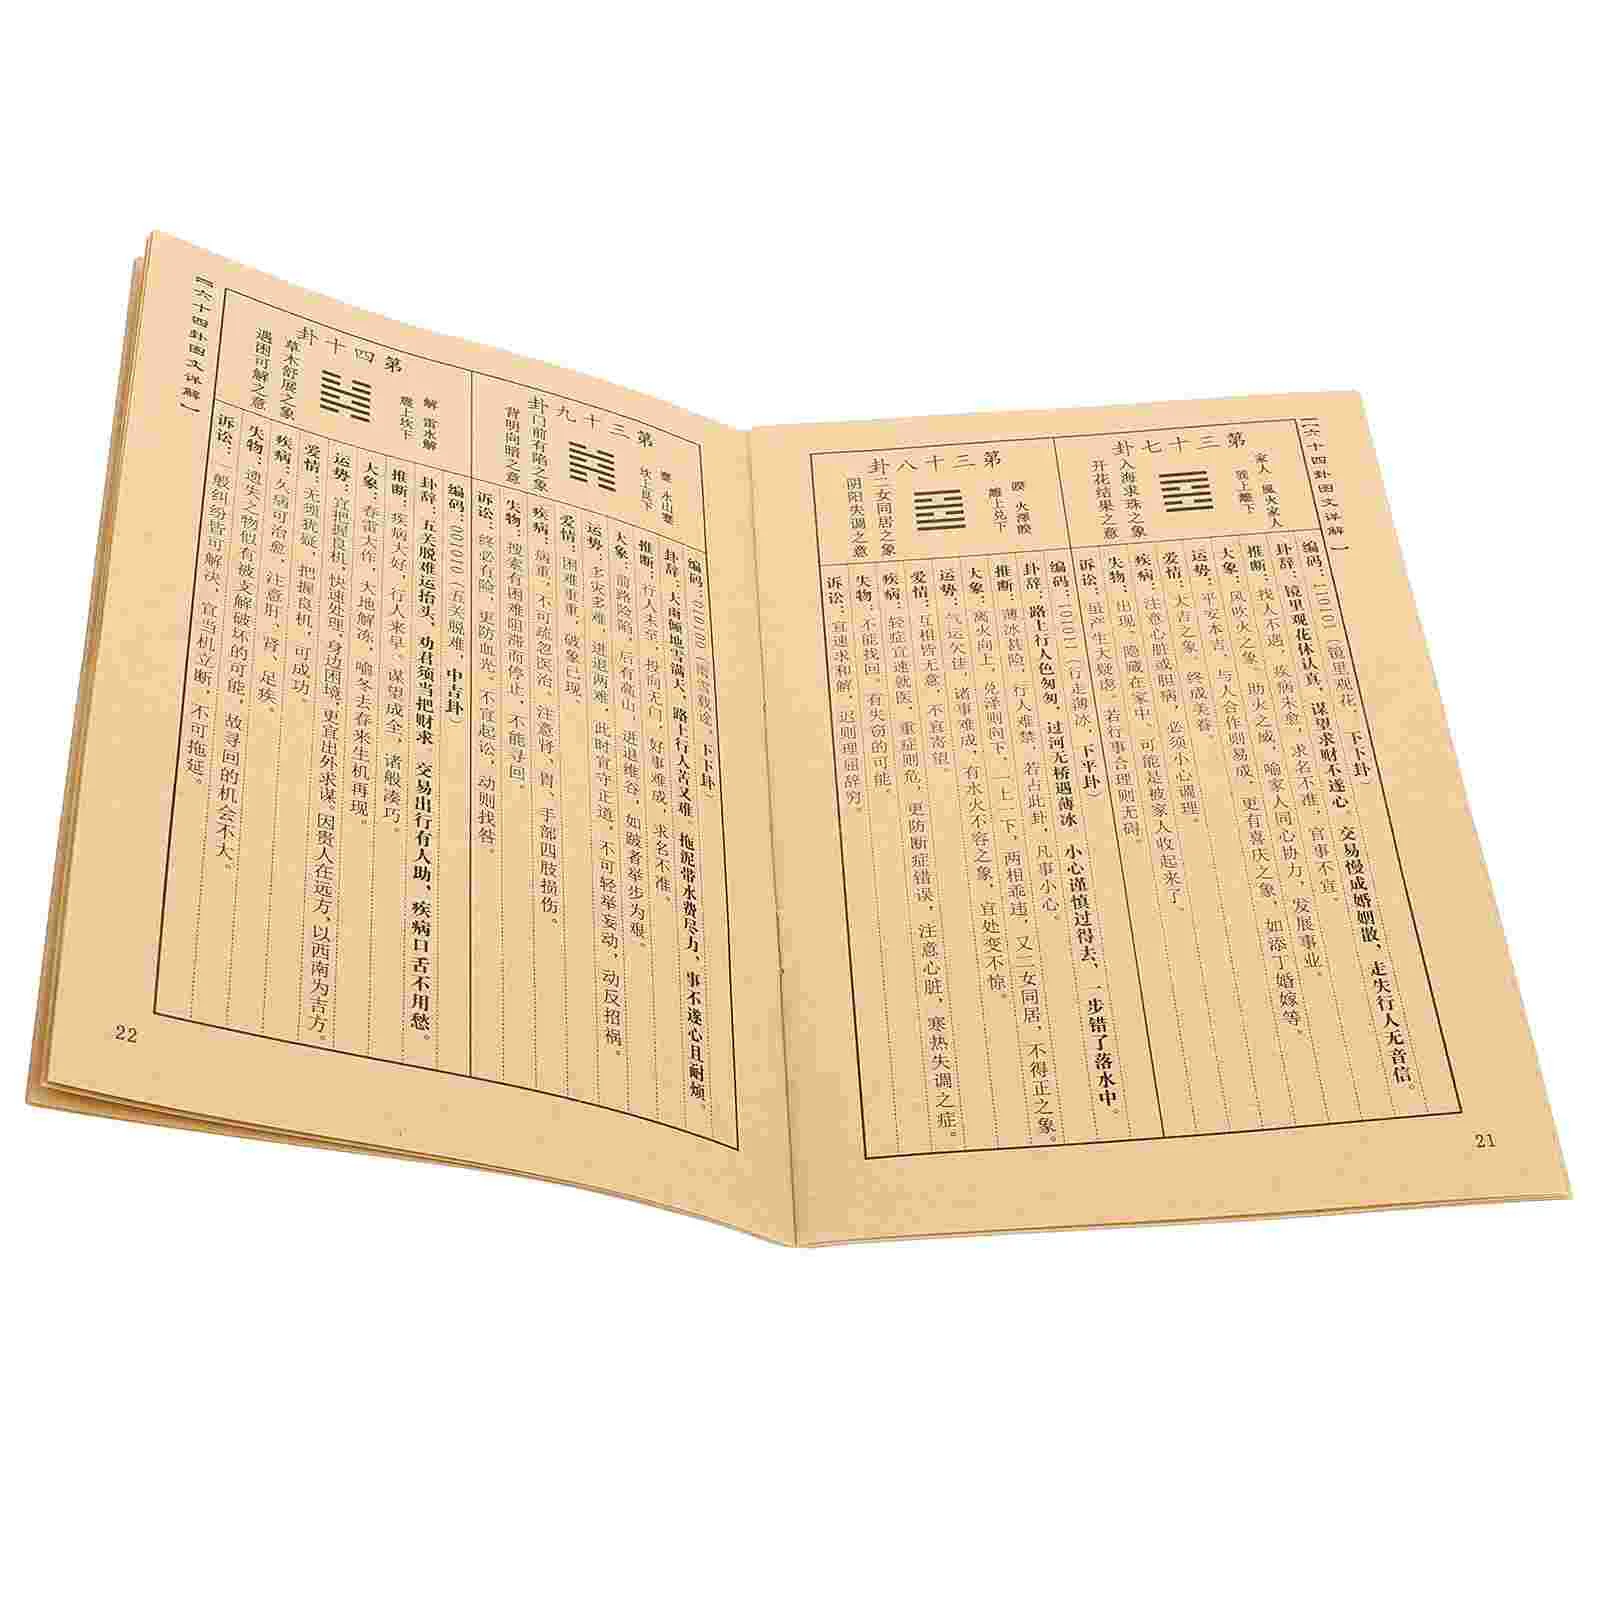 【六十四卦图文详解】
第三十七卦
家人 風火家人
巽上離下
入海求珠之象
开花结果之意
编码：110101（镜里观花，下下卦）
卦辞：镜里观花休认真，谋望求财不遂心。交易慢成婚姻散，走失行人无音信。
推断：找人不遇，疾病未愈，求名不准，官事不宜。
大象：风吹火之象，助火之威，喻家人同心协力，发展事业。
运势：平安本吉，与人合作则易成，更有喜庆之象，如添丁婚嫁等。
爱情：大吉之象，终成美眷。
疾病：注意心脏或胆病，必须小心调理。
失物：出现，隐藏在家中，可能是被家人收起来了。
诉讼：虽产生大疑虑，若行事合理则无碍。
第三十八卦
睽 火澤睽
離上兑下
二女同居之象
阴阳失调之意
编码：101011（行走薄冰，下平卦）
卦辞：路上行人色匆匆，过河无桥遇薄冰，小心谨慎过得去，一步错了落水中。
推断：薄冰甚险，行人难禁，若占此卦，凡事小心。
大象：离火向上，兑泽则向下，一上一下，两相乖违，又二女同居，不得正之象。
运势：气运欠佳，诸事难成，有水火不容之象，宜处变不惊。
爱情：互相皆无意，不宜寄望。
疾病：轻症宜速就医，重症则危，更防断症错误，注意心脏，寒热失调之症。
失物：不能找回。有失窃的可能。
诉讼：宜速求和解，迟则理屈辞穷。
21
第三十九卦
蹇 水山蹇
坎上艮下
门前有陷之象
背明向暗之意
编码：010100（雨雪载途，下下卦）
卦辞：大雨倾地雪满天，路上行人苦又难。拖泥带水费尽力，事不遂心且耐烦。
推断：行人未至，投向无门，好事难成，求名不准。
大象：前路险陷，后有高山，进退维谷，如跛者举步为艰。
运势：多灾多难，进退两难，此时宜守正道，不可轻举妄动，动反招祸。
爱情：困难重重，破象已现。
疾病：病重，不可疏忽医治。注意肾、胃、手部四肢损伤。
失物：搜索有困难阻滞而停止，不能寻回。
诉讼：终必有险，更防血光。不宜起讼，动则找咎。
第四十卦
解 雷水解
震上坎下
草木舒展之象
遇困可解之意
编码：001010（五关脱难，中吉卦）
卦辞：五关脱难运抬头，劝君须当把财求，交易出行有人助，疾病口舌不用愁。
推断：疾病大好，行人来早。谋望成全，诸般凑巧。
大象：春雷大作，大地解冻，喻冬去春来生机再现。
运势：宜把握良机，快速处理，身边困境，更宜出外求谋。因贵人在远方，以西南为吉方。
爱情：无须犹疑，把握良机，可成功。
疾病：久病可治愈，注意肝、肾、足疾。
失物：遗失之物似有被支解破坏的可能，故寻回的机会不大。
诉讼：一般纠纷皆可解决，宜当机立断，不可拖延。
【六十四卦图文详解】
22